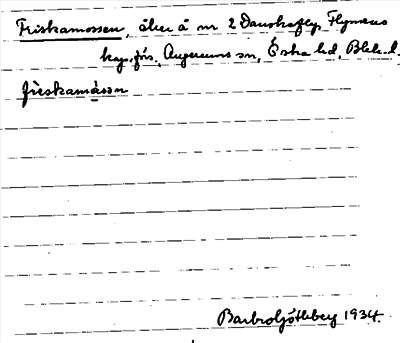 Friskamossen, åker å nr 2 Danskafly, Flymens
kap. förs. Augerums sn, Östra hd, Blek. l.
friskamåsən
Barbro Götleberg 1934.